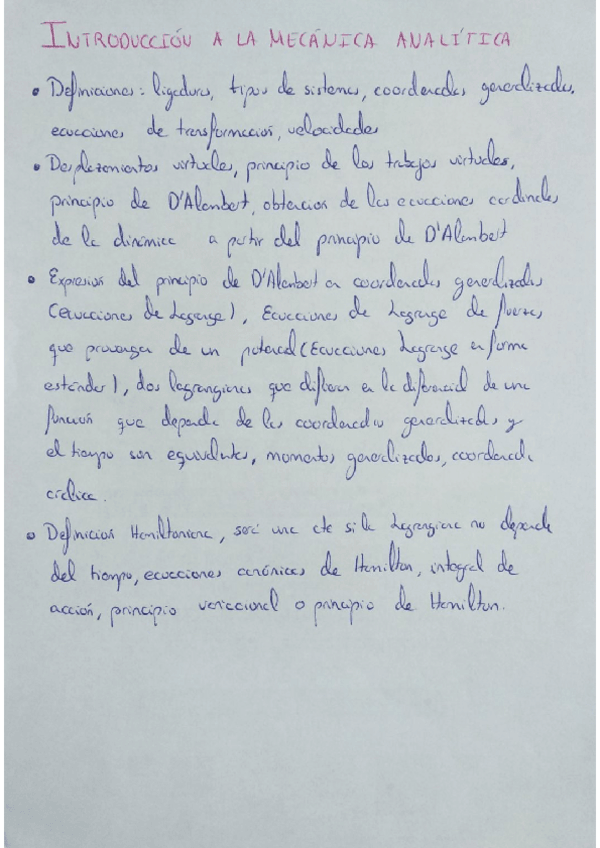 INTRODUCCIÓN A LA MECÁNICA ANALÍTICA
• Definiciones: ligadura, tipos de sistemas, coordenadas generalizadas,
ecuaciones de transformación, velocidades
• Desplazamientos virtuales, principio de los trabajos virtuales,
principio de D'Alembert, obtención de las ecuaciones cardinales
de la dinámica a partir del principio de D'Alembert
• Expresión del principio de D'Alembert en coordenadas generalizadas
(ecuaciones de Lagrange), Ecuaciones de Lagrange de fuerzas
que provengan de un potencial (Ecuaciones Lagrange en forma
estándar), dos lagrangianas que difieran en la diferencial de una
función que dependa de las coordenadas generalizadas y
el tiempo son equivalentes, momentos generalizados, coordenada
cíclica.
• Definición Hamiltoniana, será una cte si la Lagrangiana no depende
del tiempo, ecuaciones canónicas de Hamilton, integral de
acción, principio variacional o principio de Hamilton.